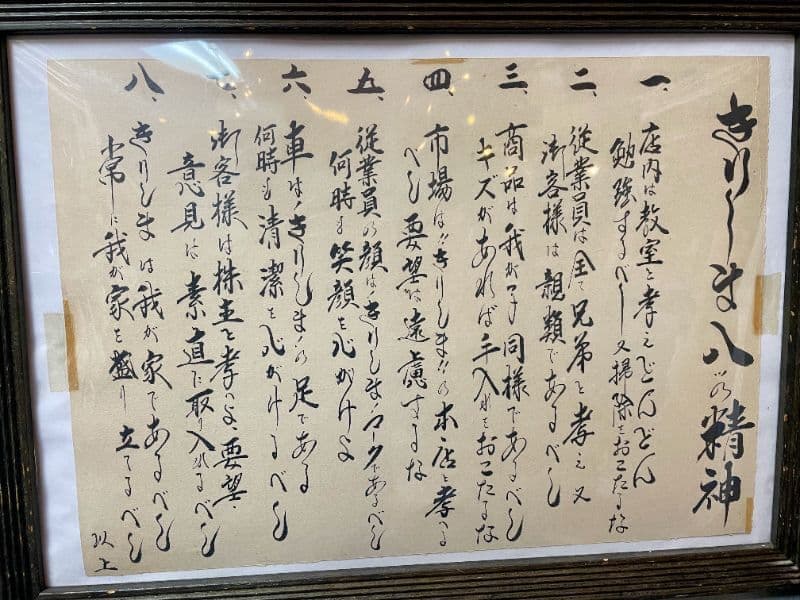 きりしま八ッの精神
一、店内は教室と考えどんどん
勉強するべし又掃除をおこたるな
二、従業員は全て兄弟と考え又
御客様は親類であるべし
三、商品は我が子同様であるべし
キズがあれば手入れをおこたるな
四、市場は"きりしま"の本店と考える
べし要望は遠慮するな
五、従業員の顔は"きりしま"のマークであるべし
何時も笑顔を心がけよ
六、車は"きりしま"の足である
何時も清潔を心がけるべし
七、御客様は株主と考へよ要望、
意見は素直に取り入れるべし
八、きりしまは我が家であるべし
常に我が家を盛り立てるべし
以上